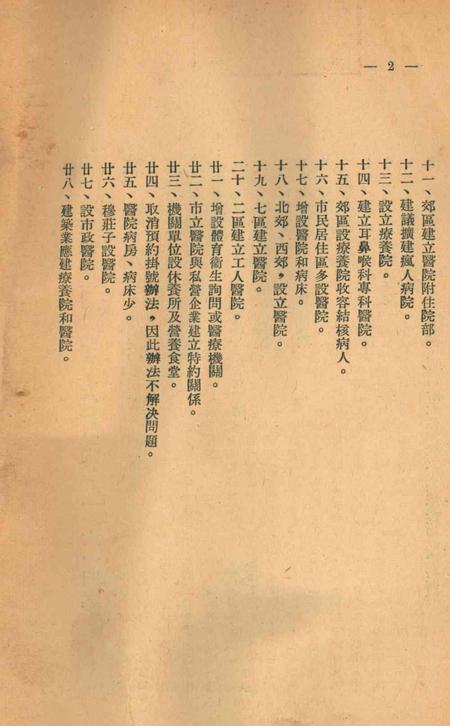 — 2 —
十一、郊區建立醫院附住院部。
十二、建議擴建瘋人病院。
十三、設立療養院。
十四、建立耳鼻喉科專科醫院。
十五、郊區設療養院收容結核病人。
十六、市民居住區多設醫院。
十七、增設醫院和病床。
十八、北郊、西郊，設立醫院。
十九、七區建立醫院。
二十、二區建立工人醫院。
廿一、增設體育衛生詢問或醫療機關。
廿二、市立醫院與私營企業建立特約關係。
廿三、機關單位設休養所及營養食堂。
廿四、取消預約掛號辦法，因此辦法不解決問題。
廿五、醫院病房、病床少。
廿六、穆莊子設醫院。
廿七、設市政醫院。
廿八、建築業應建療養院和醫院。